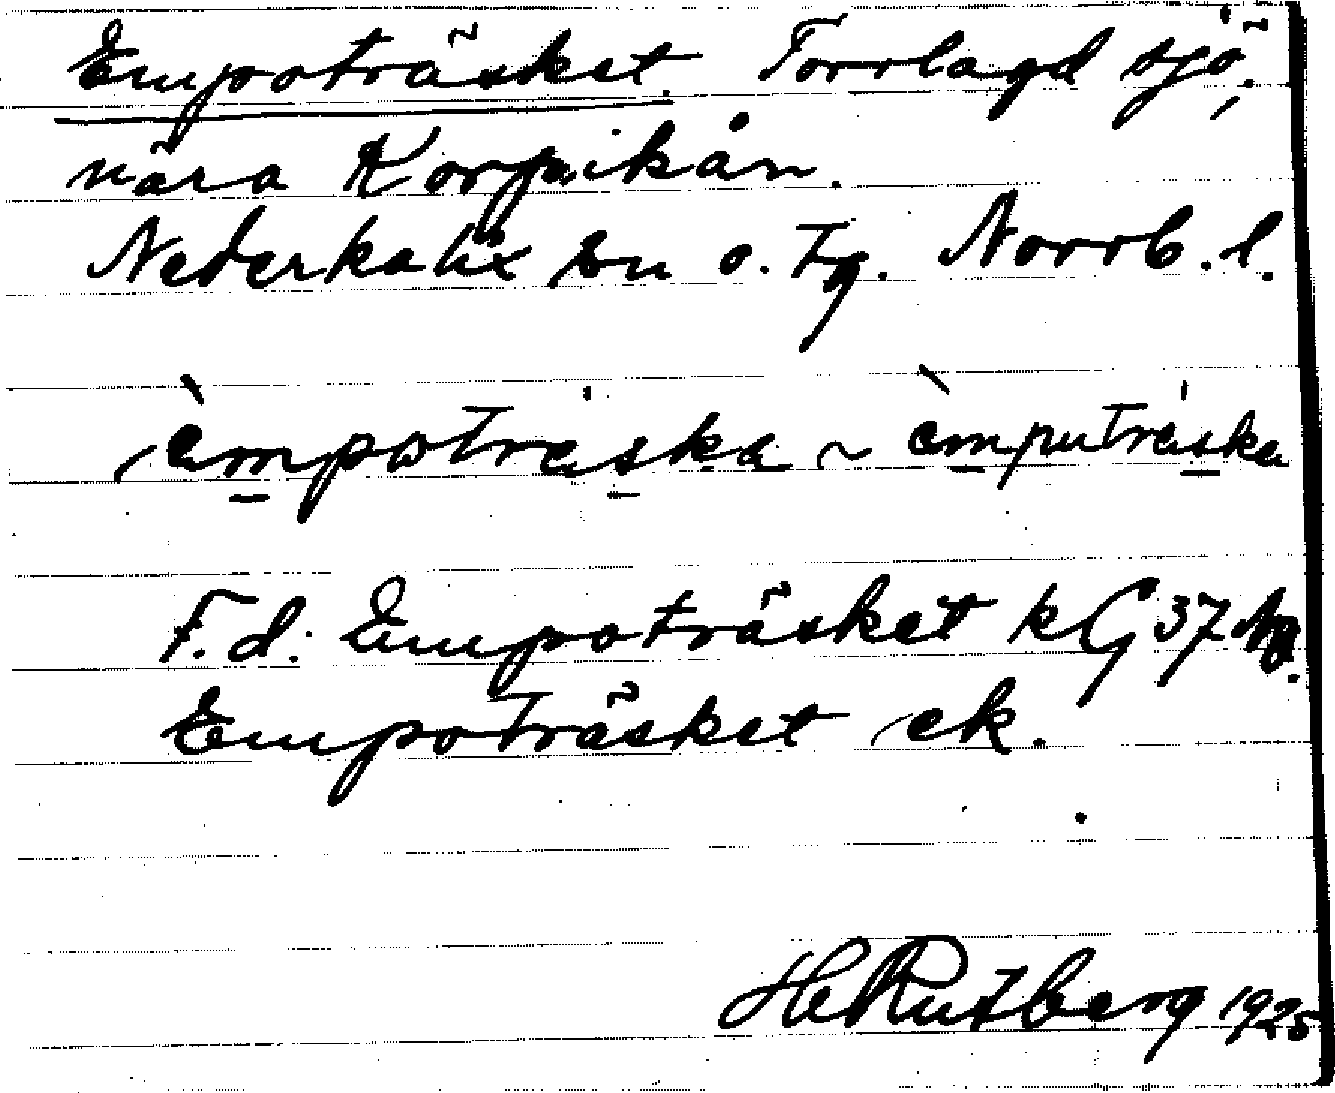 Empoträsket. Torrlagd sjö,
nära Korpikån.
Nederkalix sn o. tg. Norrb. l.
èmpoträska ~ èmputräska
F.d. Empoträsket k G 37
Empoträsket ek.
HeRutberg 1925